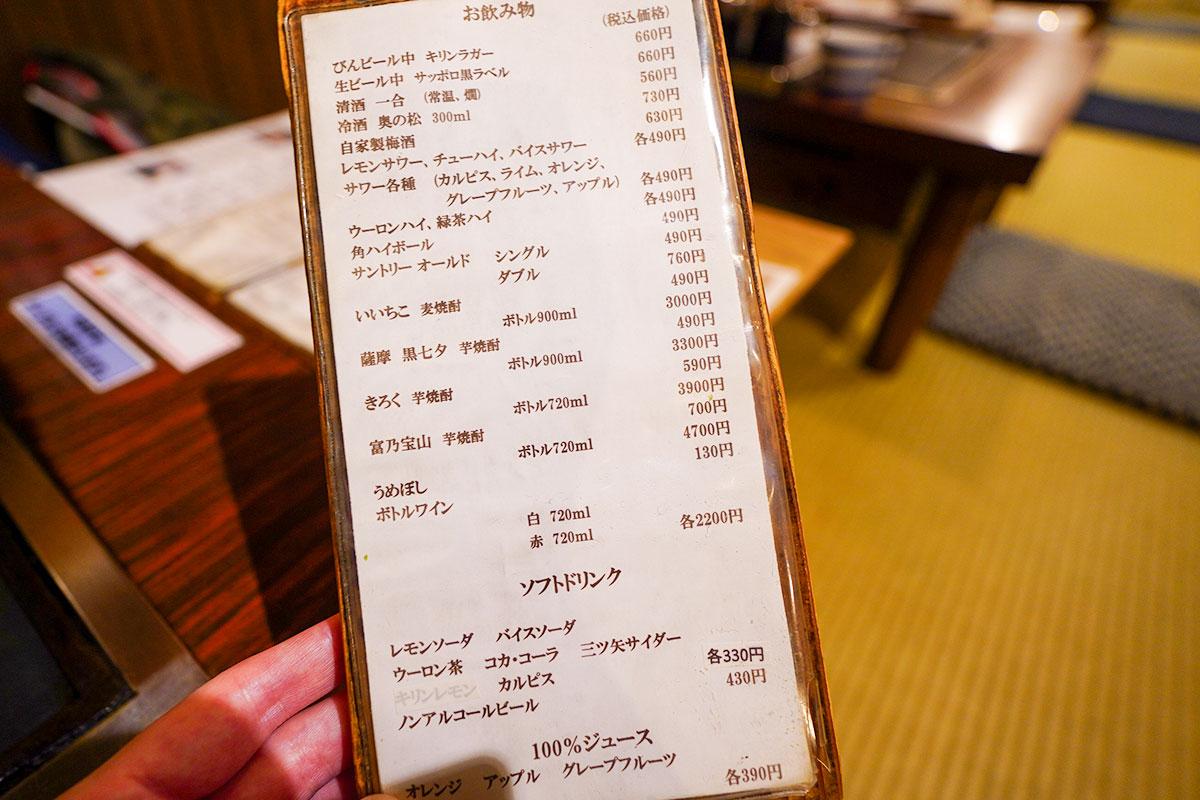 お飲み物
(税込価格)
びんビール中 キリンラガー 660円
生ビール中 サッポロ黒ラベル 660円
清酒 一合 (常温、燗) 560円
冷酒 奥の松 300ml 730円
自家製梅酒 630円
レモンサワー、チューハイ、バイスサワー 各490円
サワー各種 (カルピス、ライム、オレンジ、
グレープフルーツ、アップル) 各490円
ウーロンハイ、緑茶ハイ 各490円
角ハイボール 490円
サントリー オールド シングル 490円
ダブル 760円
いいちこ 麦焼酎 490円
ボトル900ml 3000円
薩摩 黒七夕 芋焼酎 490円
ボトル900ml 3300円
きろく 芋焼酎 590円
ボトル720ml 3900円
富乃宝山 芋焼酎 700円
ボトル720ml 4700円
うめぼし 130円
ボトルワイン 白 720ml
赤 720ml 各2200円
ソフトドリンク
レモンソーダ バイスソーダ
ウーロン茶 コカ・コーラ 三ツ矢サイダー
キリンレモン カルピス 各330円
ノンアルコールビール 430円
100%ジュース
オレンジ アップル グレープフルーツ 各390円